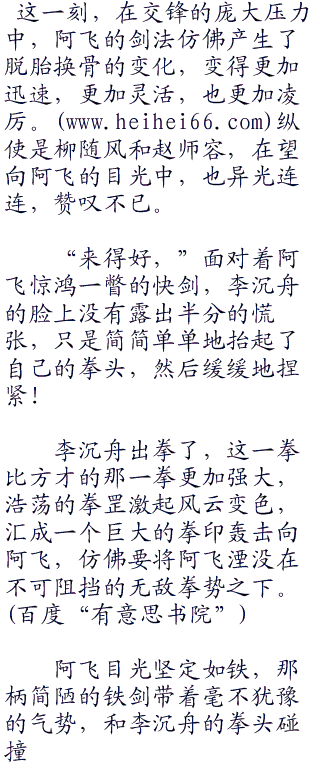 这一刻，在交锋的庞大压力
中，阿飞的剑法仿佛产生了
脱胎换骨的变化，变得更加
迅速，更加灵活，也更加凌
厉。(www.heihei66.com)纵
使是柳随风和赵师容，在望
向阿飞的目光中，也异光连
连，赞叹不已。
“来得好，”面对着阿
飞惊鸿一瞥的快剑，李沉舟
的脸上没有露出半分的慌
张，只是简简单单地抬起了
自己的拳头，然后缓缓地捏
紧！
李沉舟出拳了，这一拳
比方才的那一拳更加强大，
浩荡的拳罡激起风云变色，
汇成一个巨大的拳印轰击向
阿飞，仿佛要将阿飞湮没在
不可阻挡的无敌拳势之下。
(百度“有意思书院”)
阿飞目光坚定如铁，那
柄简陋的铁剑带着毫不犹豫
的气势，和李沉舟的拳头碰
撞